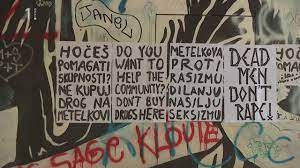 DANBU
HOČEŠ
POMAGATI
SKUPNOSTI?
NE KUPUJ
DROG NA
METELKOVI
DO YOU
WANT TO
HELP THE
COMMUNITY?
DON'T BUY
DRUGS HERE
METELKOVA
PROTI
RASIZMU:
DILANJU
NASILJU
SEKSIZMU
DEAD
MEN
DON'T
RAPE!